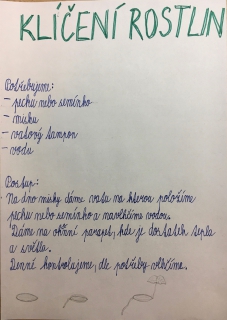 KLÍČENÍ ROSTLIN
Potřebujeme:
- pecku nebo semínko
- misku
- vatový tampon
- vodu
Postup:
Na dno misky dáme vatu na kterou položíme
pecku nebo semínko a navlhčíme vodou.
Dáme na okřní parapet, kde je dostatek tepla
a světla.
Denně kontrolujeme, dle potřeby vlhčíme.